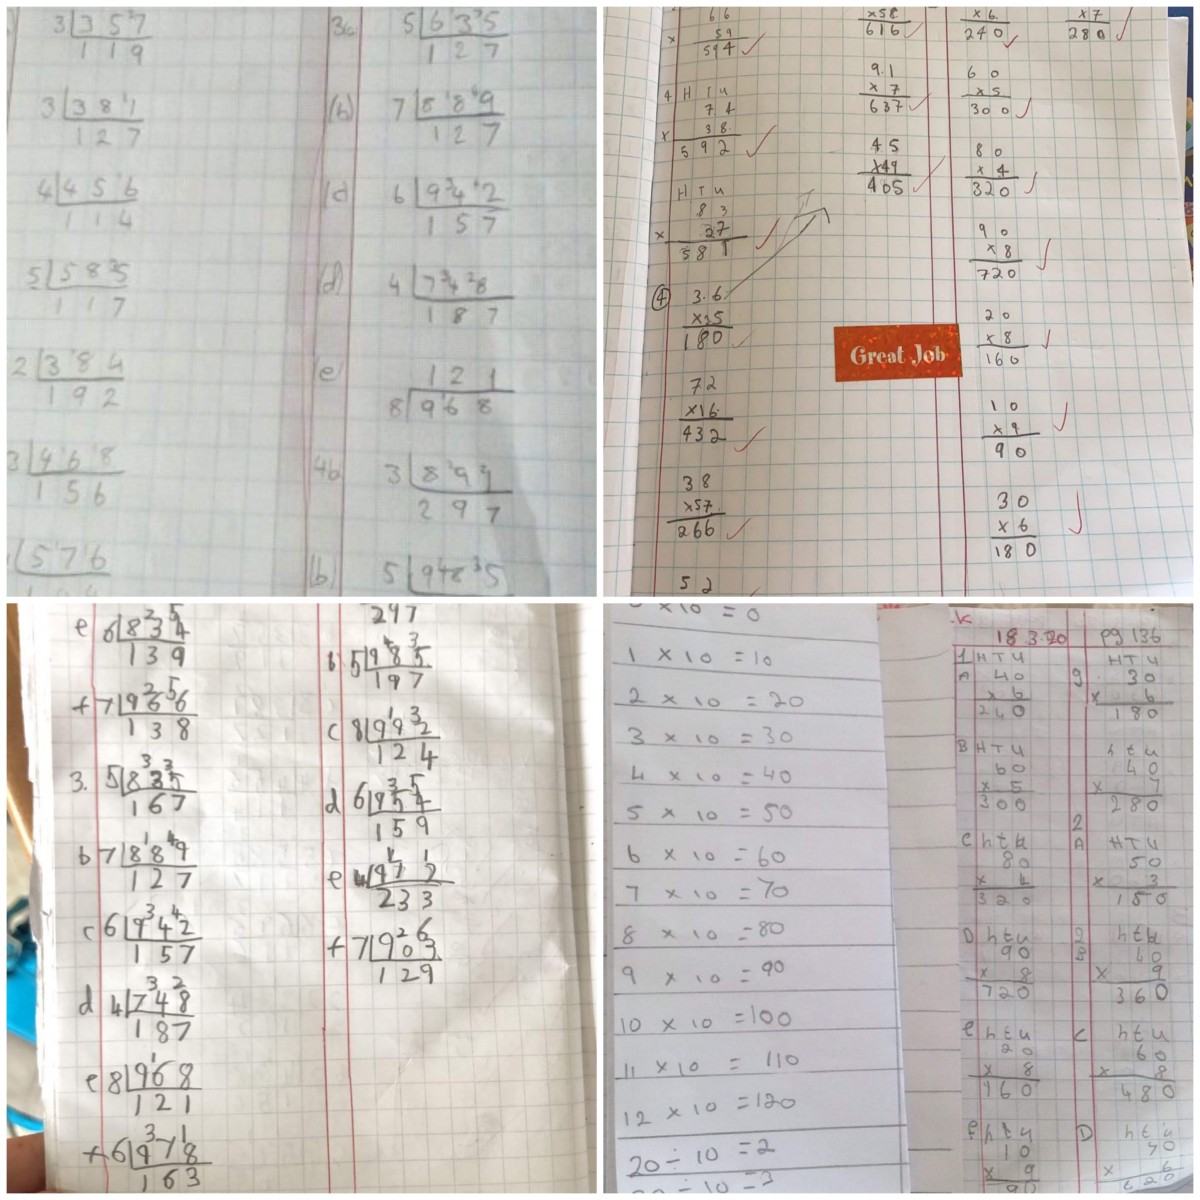 3 357
119
3 381
127
4 456
114
5 585
117
2 384
192
3 468
156
576
3a 5 635
127
(b) 7 889
127
(c) 6 942
157
(d) 4 748
187
(e) 121
8 968
4b 3 891
297
(b) 5 985
66
x 59
594
4 H T U
74
x 38
592
H T U
83
x 27
581
4 3.6
x25
180
72
x16
432
38
x57
266
52
x58
616
9.1
x7
637
45
x49
405
x6
240
60
x5
300
80
x4
320
90
x8
720
20
x8
160
10
x9
90
30
x6
180
x7
280
Great Job
e 6 834
139
f 7 966
138
3. 5 835
167
b 7 889
127
c 6 942
157
d 4 748
187
e 8 968
121
f 6 978
163
297
b 5 985
197
c 8 992
124
d 6 954
159
e 4 932
233
f 7 903
129
x 10 = 0
1 x 10 = 10
2 x 10 = 20
3 x 10 = 30
4 x 10 = 40
5 x 10 = 50
6 x 10 = 60
7 x 10 = 70
8 x 10 = 80
9 x 10 = 90
10 x 10 = 100
11 x 10 = 110
12 x 10 = 120
20 ÷ 10 = 2
÷ 10 = 3
K
18.3.20 pg 136
1 H T U
A 40
x 6
240
B H T U
60
x 5
300
C h t u
80
x 4
320
D h t u
90
x 8
720
e h t u
20
x 8
160
f h t u
10
x 9
90
H T U
g 30
x 6
180
h t u
40
x 7
280
2
A H T U
50
x 3
150
2 h t u
B 40
x 9
360
C h t u
60
x 8
480
D h t u
70
x 6
420